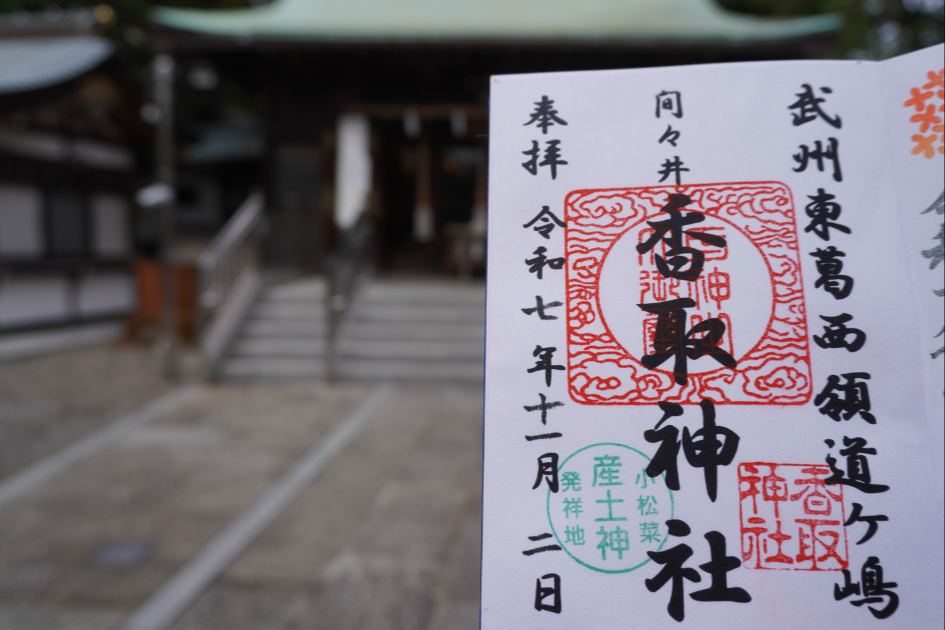 武州東葛西領道ケ嶋
間々井
香取神社
香取
神社
小松菜
産土神
発祥地
奉拝 令和七年十一月 二日